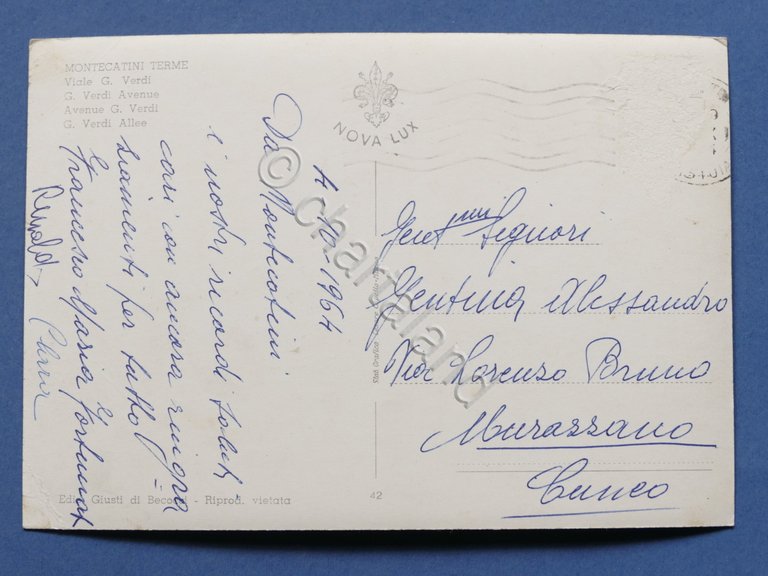 MONTECATINI TERME
Viale G. Verdi
G. Verdi Avenue
Avenue G. Verdi
G. Verdi Allee
NOVA LUX
4-10-1964
Da Montecatini
i nostri ricordi saluti
cari con ancora ringra
ziamenti per tutto
Francesco Maria
Clara
Gent.mi Signori
Gentina Alessandro
Via Lorenzo Bruno
Murazzano
Cuneo
Ediz. Giusti di Becocci - Riprod. vietata
42
© chartaland